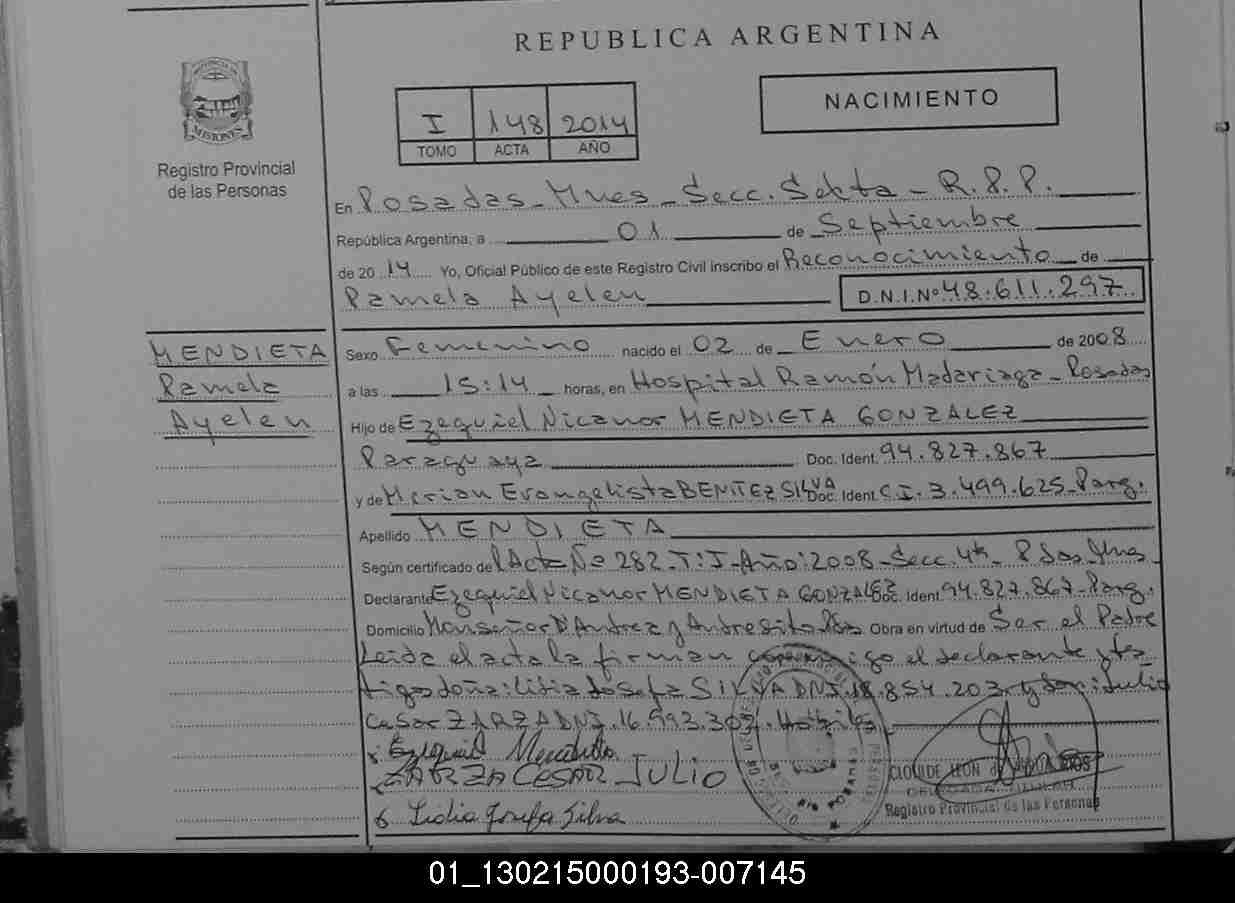 REPUBLICA ARGENTINA
PROVINCIA DE
MISIONES
Registro Provincial
de las Personas
NACIMIENTO
I 148 2014
TOMO ACTA AÑO
En Posadas - Mnes - Secc. Sexta - R.P.P.
República Argentina, a 01 de Septiembre
de 2014 Yo, Oficial Público de este Registro Civil inscribo el Reconocimiento de
Pamela Ayelen D.N.I.Nº 48.611.297
MENDIETA
Pamela
Ayelen
Sexo Femenino nacido el 02 de Enero de 2008
a las 15:14 horas, en Hospital Ramón Madariaga - Posadas
Hijo de Ezequiel Nicanor MENDIETA GONZALEZ
Paraguaya Doc. Ident. 94.827.867
y de Mirian Evangelista BENITEZ SILVA Doc. Ident. C.I. 3.499.625 - Parg.
Apellido MENDIETA
Según certificado del Acta Nº 282 - T: I - Año: 2008 - Secc. 4ta - Pdas. Mnes
Declarante Ezequiel Nicanor MENDIETA GONZALEZ Doc. Ident. 94.827.867 - Parg.
Domicilio Monseñor D'Andrea y Andresito Pdas Obra en virtud de Ser el Padre
Leida el acta la firman conmigo el declarante y tes
tigos doña: Lidia Josefa SILVA DNI. 18.854.203 y don: Julio
Cesar ZARZA DNI. 16.993.307.
Ezequiel Mendieta
ZARZA CESAR JULIO
Lidia Josefa Silva
CLOTILDE LEON
Registro Provincial de las Personas
01_130215000193-007145